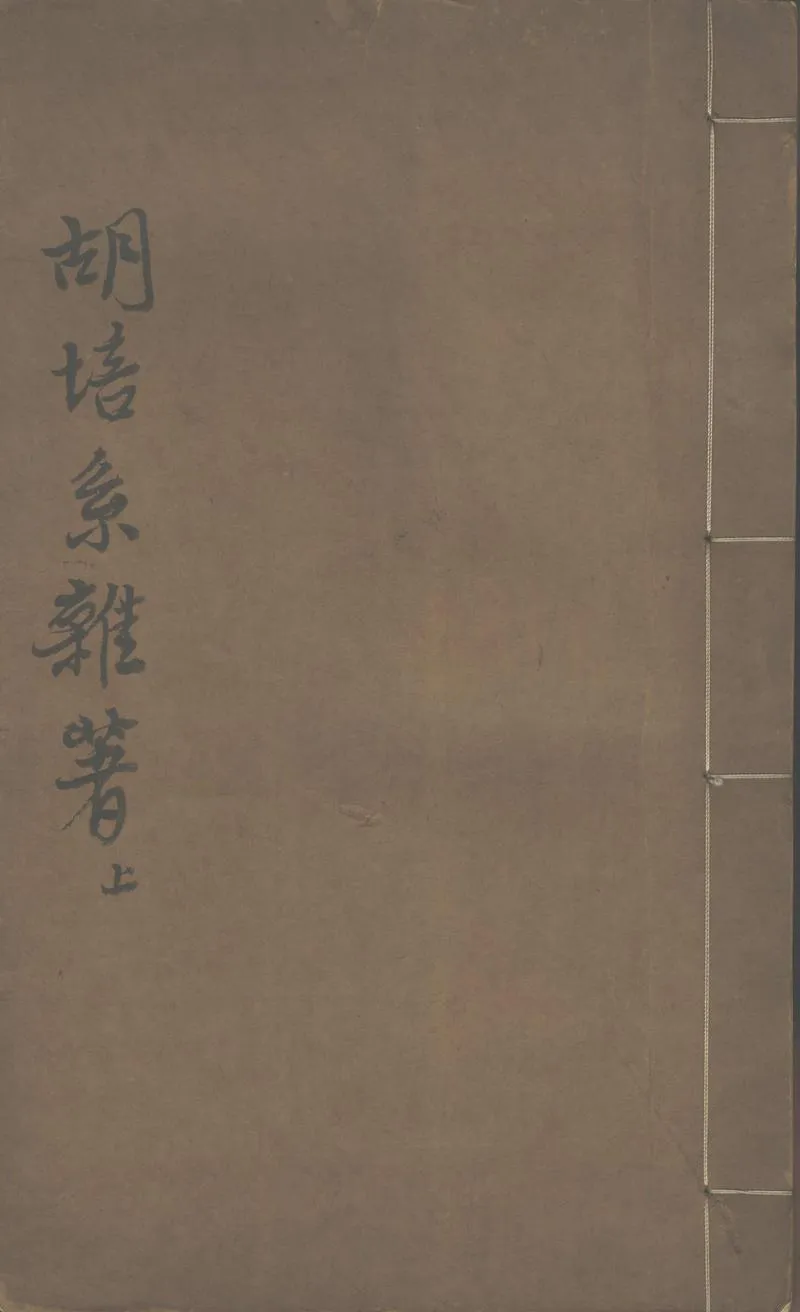 胡培系雜著上